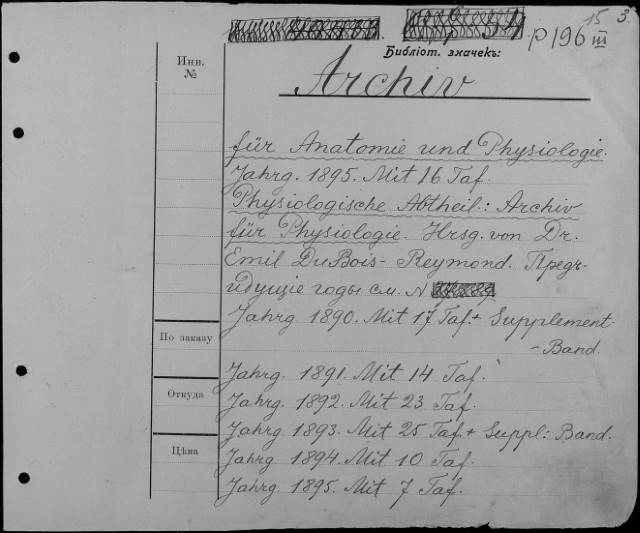 p 196 15/III 3.
Библіот. значекъ:
Инв. №
Archiv
für Anatomie und Physiologie.
Jahrg. 1895. Mit 16 Taf.
Physiologische Abtheil.: Archiv
für Physiologie. Hrsg. von Dr.
Emil DuBois-Reymond. Предъ-
идущіе годы см. N
Jahrg. 1890. Mit 17 Taf. + Supplement-
-Band.
По заказу
Jahrg. 1891. Mit 14 Taf.
Откуда
Jahrg. 1892. Mit 23 Taf.
Jahrg. 1893. Mit 25 Taf. + Suppl: Band.
Цѣна
Jahrg. 1894. Mit 10 Taf.
Jahrg. 1895. Mit 7 Taf.